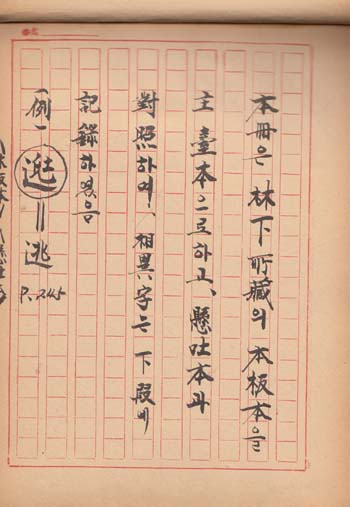 本冊은 林下所藏의 木板本을
主臺本으로하고、懸吐本과
對照하여、相異字는 下段에
記錄하였음
例一 逃=逃 P.245